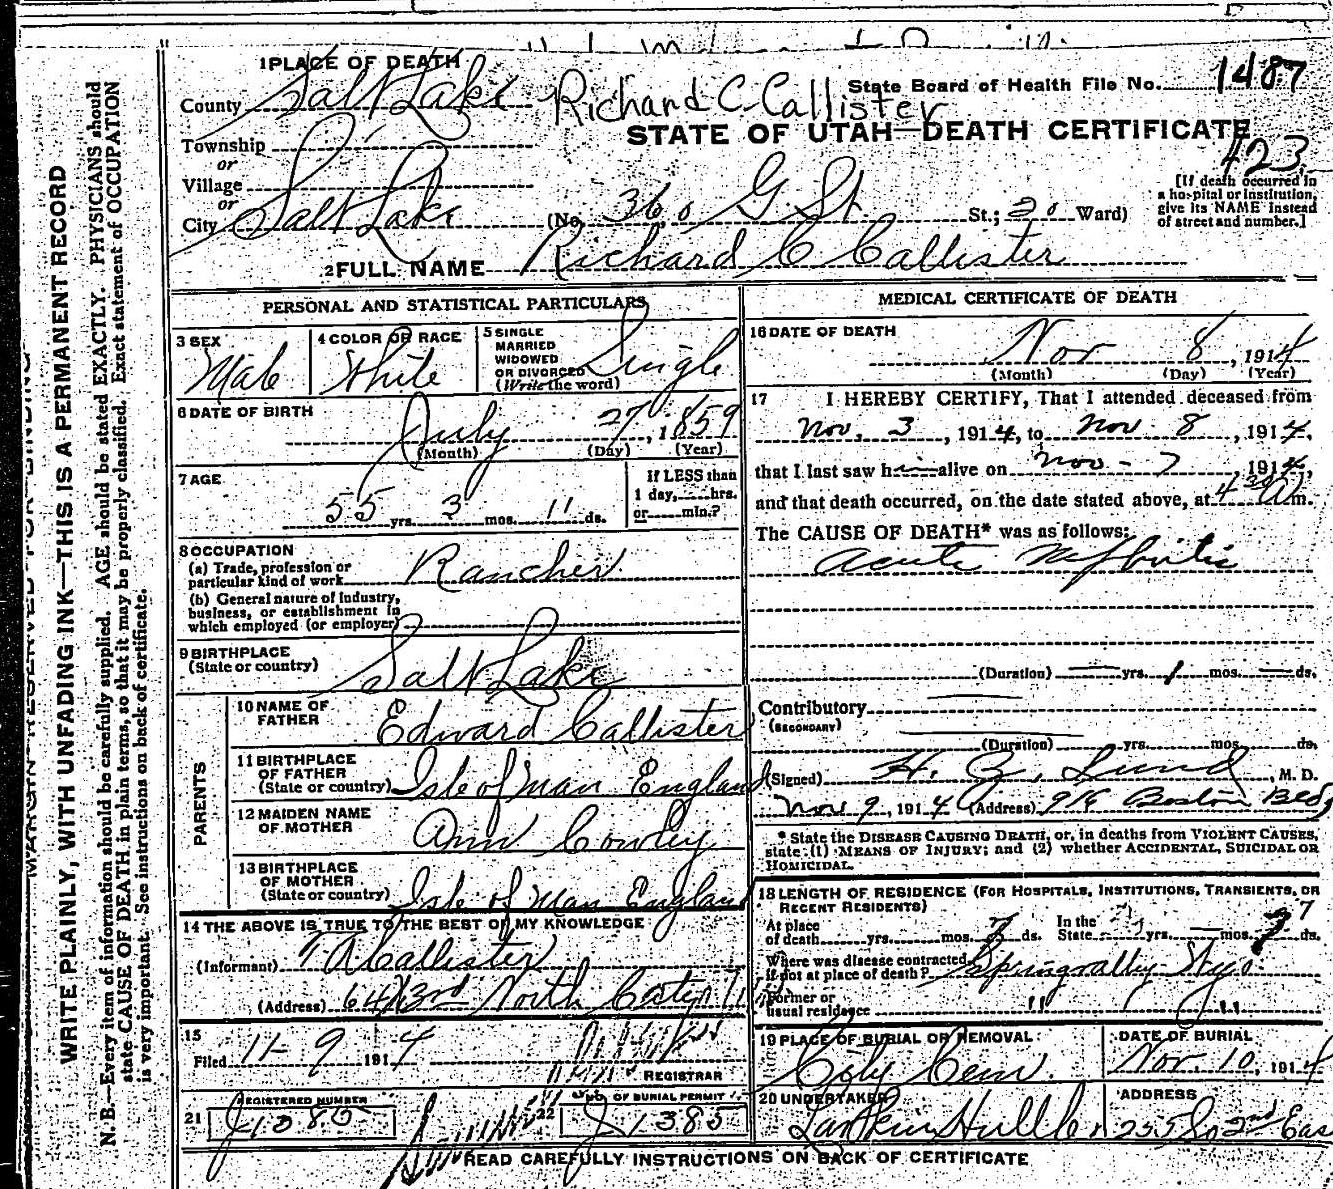 1 PLACE OF DEATH
County Salt Lake
Richard C. Callister
State Board of Health File No. 1487
STATE OF UTAH—DEATH CERTIFICATE
423
Township
or
Village
or
City Salt Lake (No. 360 G St. St.; 20 Ward)
[If death occurred in a hospital or institution, give its NAME instead of street and number.]
2 FULL NAME Richard C Callister
PERSONAL AND STATISTICAL PARTICULARS
3 SEX Male
4 COLOR OR RACE White
5 SINGLE MARRIED WIDOWED OR DIVORCED (Write the word) Single
6 DATE OF BIRTH
July 27, 1859
(Month) (Day) (Year)
7 AGE
55 yrs. 3 mos. 11 ds.
If LESS than 1 day, hrs. or min.?
8 OCCUPATION
(a) Trade, profession or particular kind of work Rancher
(b) General nature of industry, business, or establishment in which employed (or employer)
9 BIRTHPLACE
(State or country) Salt Lake
PARENTS
10 NAME OF FATHER Edward Callister
11 BIRTHPLACE OF FATHER (State or country) Isle of Man England
12 MAIDEN NAME OF MOTHER Ann Cowley
13 BIRTHPLACE OF MOTHER (State or country) Isle of Man England
14 THE ABOVE IS TRUE TO THE BEST OF MY KNOWLEDGE
(Informant) Callister
(Address) 3rd North
15
Filed 11-9 1914
REGISTRAR
21 REGISTERED NUMBER
22 NO. OF BURIAL PERMIT J1385
MEDICAL CERTIFICATE OF DEATH
16 DATE OF DEATH
Nov 8, 1914
(Month) (Day) (Year)
17 I HEREBY CERTIFY, That I attended deceased from
Nov. 3, 1914, to Nov. 8, 1914,
that I last saw h alive on Nov - 7, 1914,
and that death occurred, on the date stated above, at 4 30 A m.
The CAUSE OF DEATH* was as follows:
Acute Nephritis
(Duration) yrs. 1 mos. ds.
Contributory
(SECONDARY)
(Duration) yrs. mos. ds.
(Signed) Lund, M. D.
Nov 9, 1914 (Address) Boston Bldg
* State the DISEASE CAUSING DEATH, or, in deaths from VIOLENT CAUSES,
state (1) MEANS OF INJURY; and (2) whether ACCIDENTAL, SUICIDAL OR
HOMICIDAL.
18 LENGTH OF RESIDENCE (FOR HOSPITALS, INSTITUTIONS, TRANSIENTS, OR
RECENT RESIDENTS)
At place of death yrs. mos. 7 ds. In the State yrs. mos. 7 ds.
Where was disease contracted, if not at place of death?
Former or usual residence " "
19 PLACE OF BURIAL OR REMOVAL City Cem.
DATE OF BURIAL Nov. 10, 1914
20 UNDERTAKER
ADDRESS 255 So 2nd East
READ CAREFULLY INSTRUCTIONS ON BACK OF CERTIFICATE
WRITE PLAINLY, WITH UNFADING INK—THIS IS A PERMANENT RECORD
N. B.—Every item of information should be carefully supplied. AGE should be stated EXACTLY. PHYSICIANS should
state CAUSE OF DEATH in plain terms, so that it may be properly classified. Exact statement of OCCUPATION
is very important. See instructions on back of certificate.